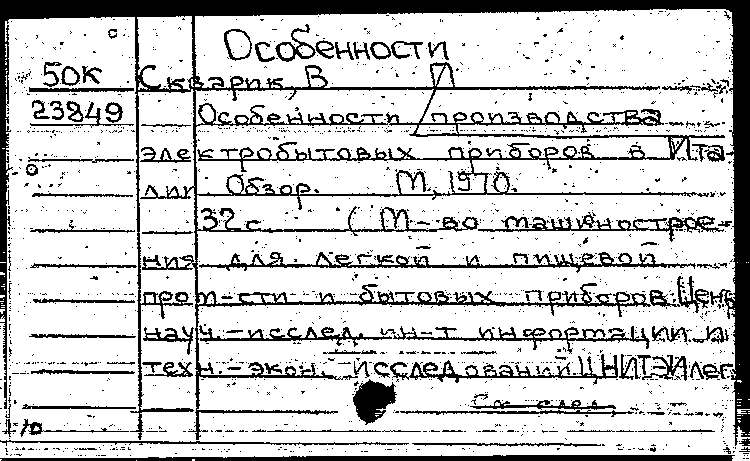 Особенности
50К Скварик, В П
23849 Особенности производства
электробытовых приборов в Ита-
лии Обзор. М, 1970.
32 с (М-во машинострое-
ния для легкой и пищевой
пром-сти и бытовых приборов. Центр
науч.-исслед. ин-т информации и
техн.-экон. исследований ЦНИТЭИлег
См след,
10